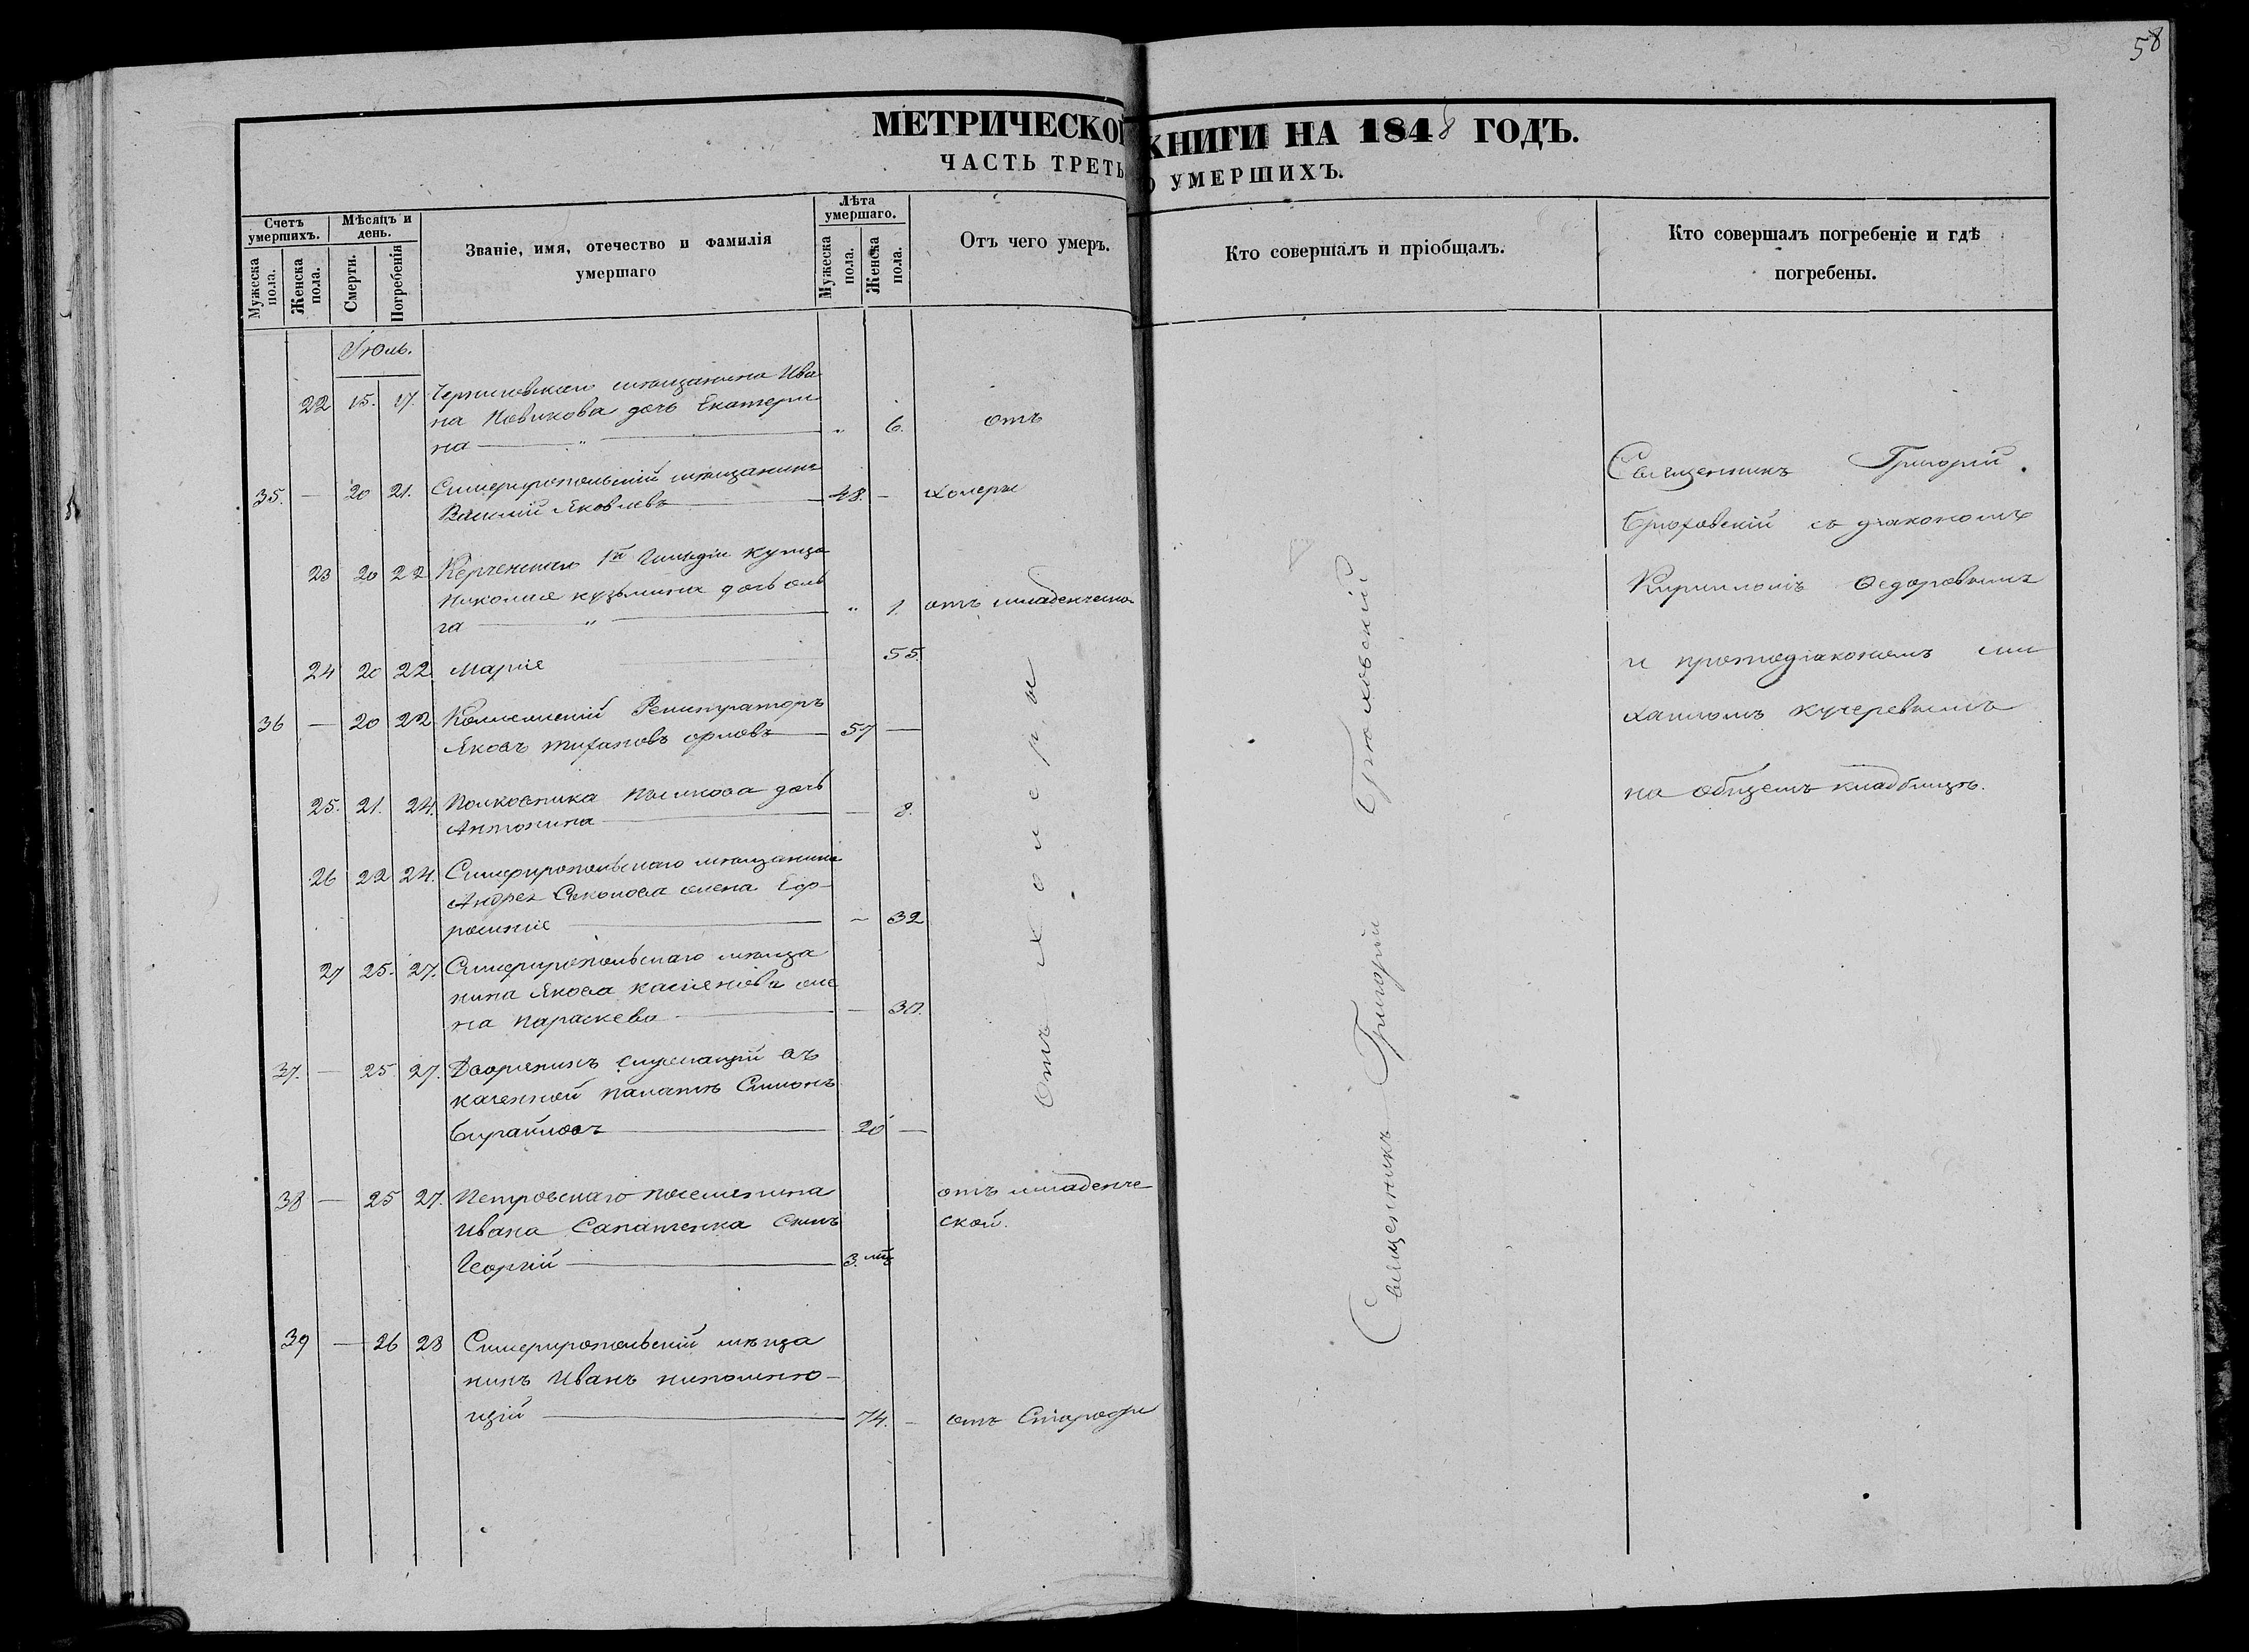 58
МЕТРИЧЕСКОЙ КНИГИ НА 1848 ГОДЪ.
ЧАСТЬ ТРЕТЬ О УМЕРШИХЪ.
Счетъ умершихъ.
Мужеска пола.
Женска пола.
Мѣсяцъ и день.
Смерти.
Погребенія
Званіе, имя, отечество и фамилія
умершаго
Лѣта умершаго.
Мужеска пола.
Женска пола.
Отъ чего умеръ.
Кто совершалъ и пріобщалъ.
Кто совершалъ погребеніе и гдѣ
погребены.
Іюль.
22 15. 17. Черниговскаго мѣщанина Ива
на Новикова дочь Екатери
на 6. отъ
35. — 20 21. Симферопольскій мѣщанинъ
Василій Яковлевъ 48. — холеры
23 20 22 Керченскаго 1й Гильдіи купца
Николая кузьмина дочь оль
га 1. отъ младенческа
24 20 22. Марія 55.
36 — 20 22 Колежскій Регистраторъ
Яковъ орловъ 57 —
25. 21. 24. Полковника дочь
Антонина — 8.
26 22 24. Симферопольскаго мѣщанина
Андрея жена Еф-
росинія — 32
27 25. 27. Симферопольскаго мѣща
нина Якова жe
на параскева — 30.
37. — 25 27. Дворянинъ служащій въ
казенной палатѣ Симонъ
20 —
38 — 25 27. Петровскаго поселянина
Ивана Сынъ
Георгій 3. отъ младенче
ской.
39 — 26 28 Симферопольскій мѣща
нинъ Иванъ непомню-
щій 74. — отъ Старости
Отъ холеры
Священникъ Григорій
Священникъ Григорій
съ діакономъ
Кирилломъ Ѳедоровымъ
и протодіакономъ ми
хаиломъ кучеревымъ
на общемъ кладбищѣ.